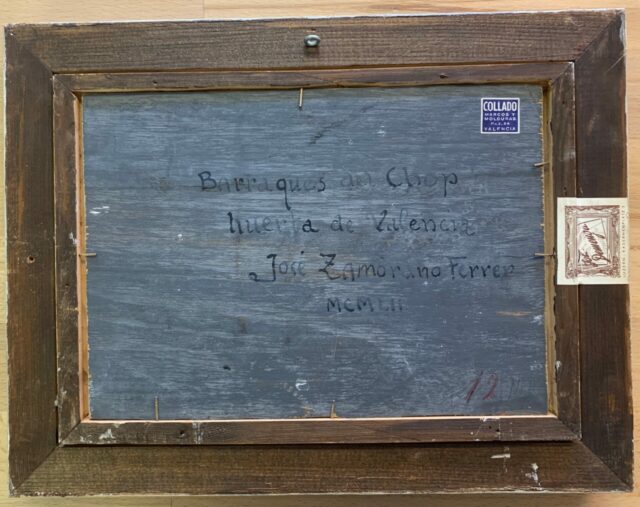 COLLADO
MARCOS Y
MOLDURAS
VALENCIA
Barraques del Chop
huerta de Valencia
José Zamorano Ferrer
MCMLII
12